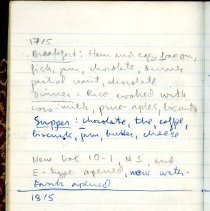 17/5
Breakfast: Ham and egg, bacon,
fish, jam, chocolate, dinner
potted meat, chocolate
Dinner: Rice cooked with
cow-milk, pine-aples, biscuits
Supper: chocolate, the, coffee,
biscuits, jam, butter, cheese
New box 10-1, # 5, and
E-type opened, new water-
tank opened
18/5